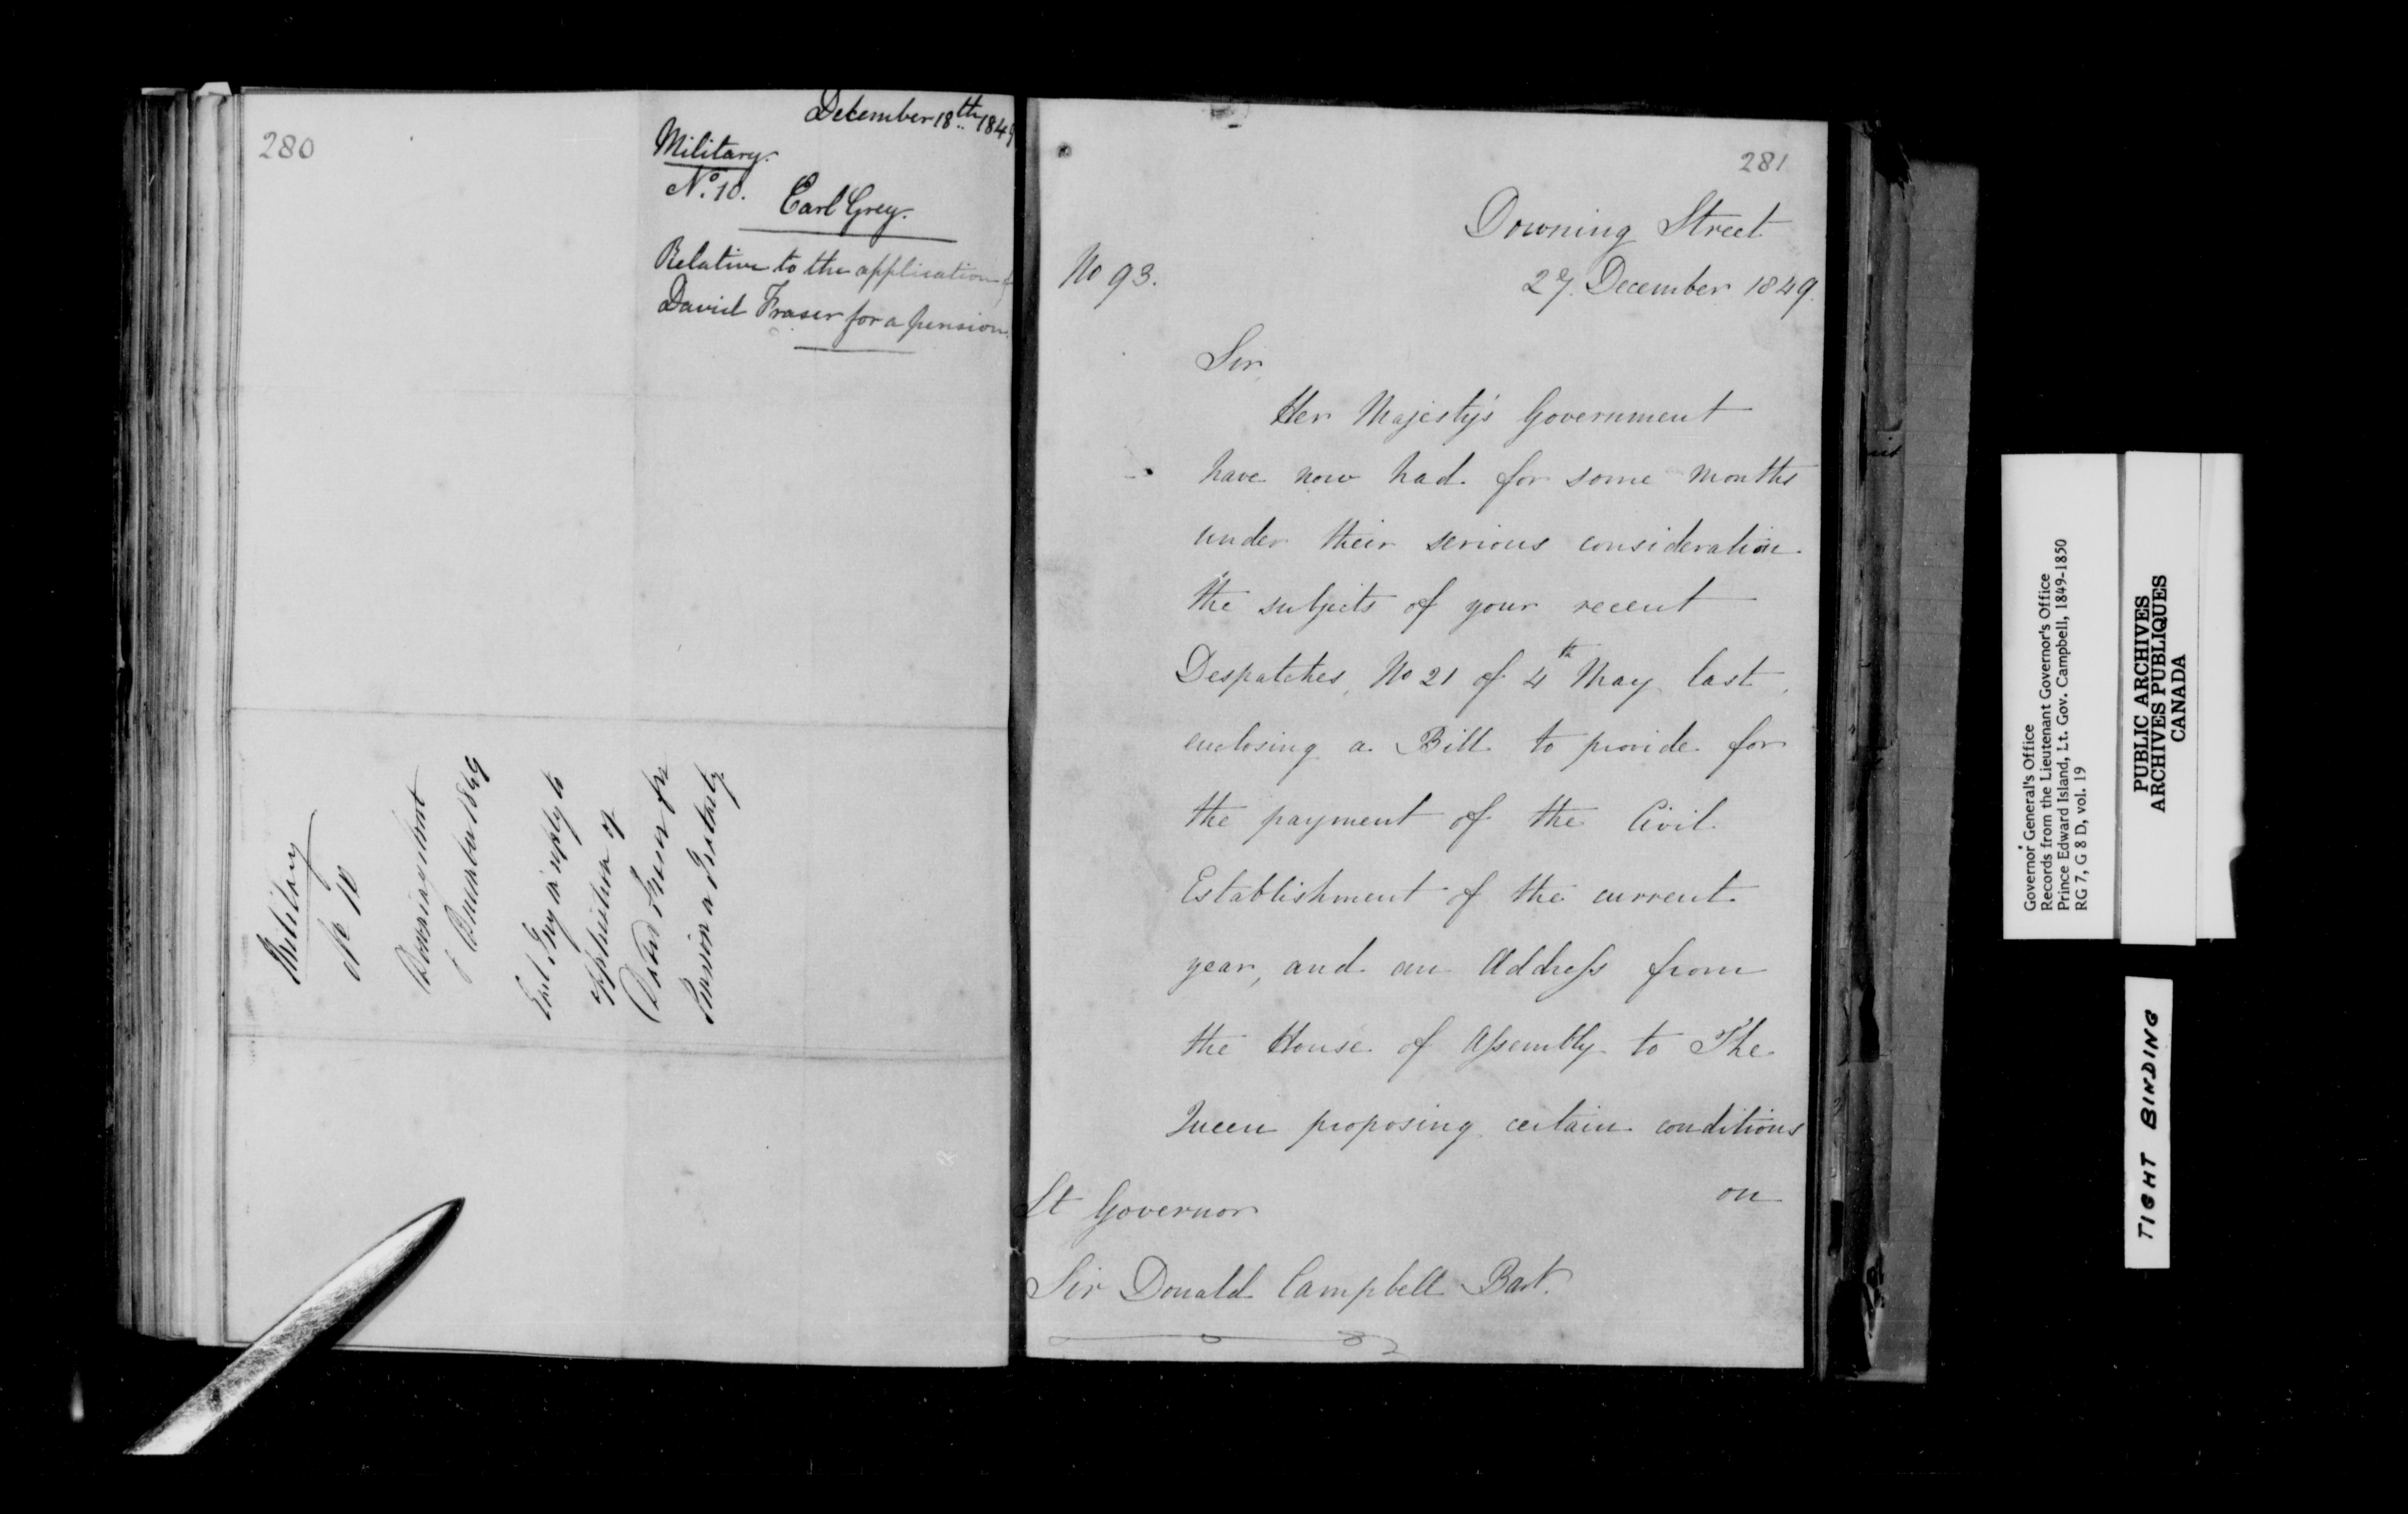 280
December 18th 1849
Military.
No. 10.
Earl Grey.
Relative to the application of
David Fraser for a pension.
Military
No 10
Downing Street
December 1849
Earl Grey in reply to
application of
David Fraser for
Pension or Gratuity
281
Downing Street
No 93.
27. December 1849.
Sir
Her Majesty's Government
have now had for some months
under their serious consideration
the subjects of your recent
Despatches, No 21 of 4th May last,
enclosing a Bill to provide for
the payment of the Civil
Establishment of the current
year, and an Address from
the House of Assembly to The
Queen proposing certain conditions
on
Lt Governor
Sir Donald Campbell Bart.
Governor General's Office
Records from the Lieutenant Governor's Office
Prince Edward Island, Lt. Gov. Campbell, 1849-1850
RG 7, G 8 D, vol. 19
PUBLIC ARCHIVES
ARCHIVES PUBLIQUES
CANADA
TIGHT BINDING